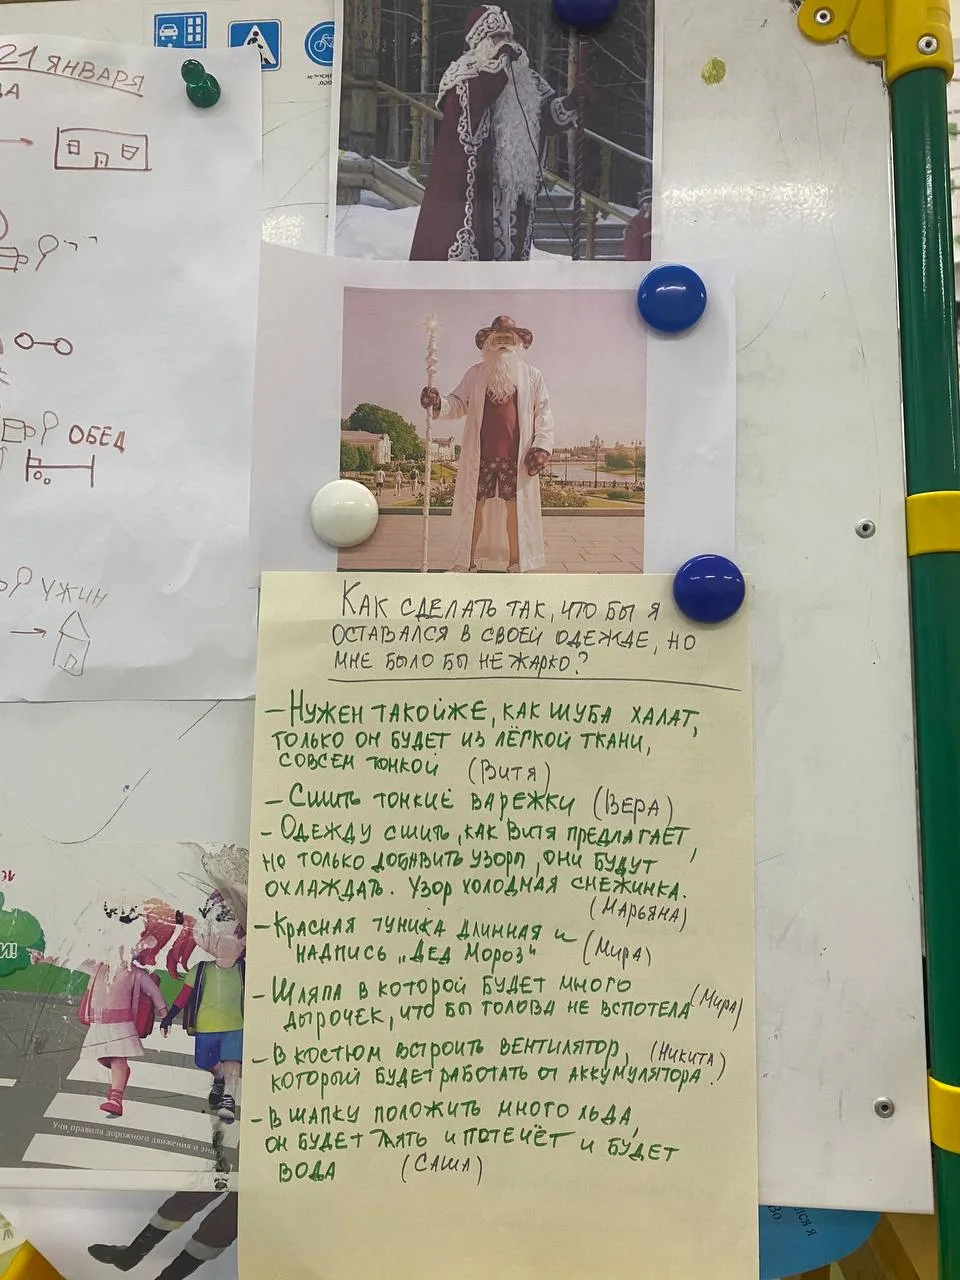 21 ЯНВАРЯ
ОБЕД
УЖИН
КАК СДЕЛАТЬ ТАК, ЧТО БЫ Я
ОСТАВАЛСЯ В СВОЕЙ ОДЕЖДЕ, НО
МНЕ БЫЛО БЫ НЕ ЖАРКО?
– НУЖЕН ТАКОЙЖЕ, КАК ШУБА ХАЛАТ,
ТОЛЬКО ОН БУДЕТ ИЗ ЛЁГКОЙ ТКАНИ,
СОВСЕМ ТОНКОЙ (ВИТЯ)
– СШИТЬ ТОНКИЕ ВАРЕЖКИ (ВЕРА)
– ОДЕЖДУ СШИТЬ, КАК ВИТЯ ПРЕДЛАГАЕТ,
НО ТОЛЬКО ДОБАВИТЬ УЗОРЫ, ОНИ БУДУТ
ОХЛАЖДАТЬ. УЗОР ХОЛОДНАЯ СНЕЖИНКА.
(МАРЬЯНА)
– КРАСНАЯ ТУНИКА ДЛИННАЯ И
НАДПИСЬ „ДЕД МОРОЗ" (МИРА)
– ШЛЯПА В КОТОРОЙ БУДЕТ МНОГО
ДЫРОЧЕК, ЧТО БЫ ГОЛОВА НЕ ВСПОТЕЛА (МИРА)
– В КОСТЮМ ВСТРОИТЬ ВЕНТИЛЯТОР, (НИКИТА)
КОТОРЫЙ БУДЕТ РАБОТАТЬ ОТ АККУМУЛЯТОРА.
– В ШАПКУ ПОЛОЖИТЬ МНОГО ЛЬДА,
ОН БУДЕТ ТАЯТЬ И ПОТЕЧЁТ И БУДЕТ
ВОДА (САША)
Учи правила дорожного движения и